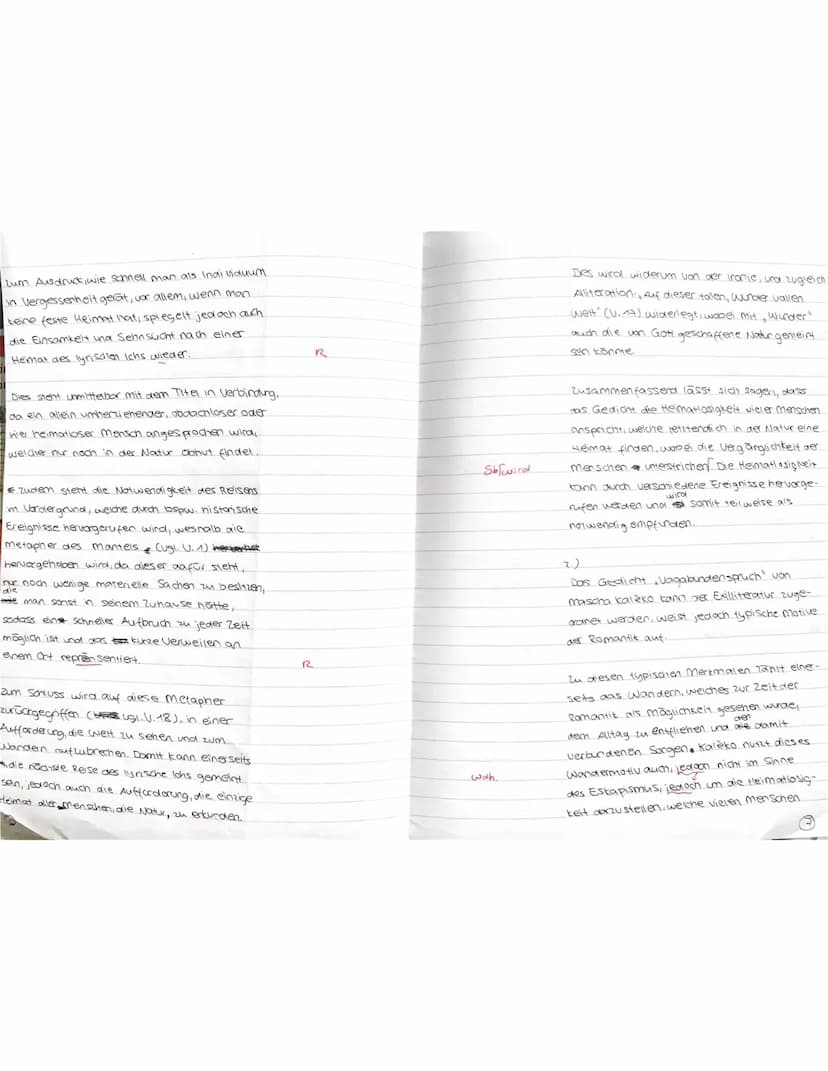 zum Ausdruck, wie schnell man als Individuum
in Vergessenheit gerät, vor allem, wenn man
keine feste Heimat hat, spiegelt jedoch auch
die Einsamkeit und Sehnsucht nach einer
Heimat des lyrischen Ichs wieder.
R
Dies steht unmittelbar mit dem Titel in Verbindung,
da ein allein umherziehender, obdachloser oder
heimatloser Mensch angesprochen wird,
welcher nur noch in der Natur Obhut findet.
Zudem steht die Notwendigkeit des Reisens
im Vordergrund, welche durch bspw. historische
Ereignisse hervorgerufen wird, weshalb die
Metapher des Mantels (vgl. V. 1)
hervorgehoben wird, da dieser dafür steht,
nur noch wenige materielle Sachen zu besitzen,
die man sonst in seinem Zuhause hätte,
sodass ein schneller Aufbruch zu jeder Zeit
möglich ist und das kurze Verweilen an
einem Ort reprensentiert.
R
Zum Schluss wird auf diese Metapher
zurückgegriffen (vgl. V. 18), in einer
Aufforderung, die Welt zu sehen und zum
Wandern aufzubrechen. Damit kann einerseits
die nächste Reise des lyrische Ichs gemeint
sein, jedoch auch die Aufforderung, die einzige
Heimat aller Menschen, die Natur, zu erkunden.
Dies wird widerum von der Ironie, und zugleich
Alliteration: „Auf dieser tollen, wunder vollen
Welt" (V. 17) widerlegt, wobei mit „Wunder"
auch die von Gott geschaffene Natur gemeint
sein könne.
Zusammenfassend lässt sich sagen, dass
das Gedicht die Heimatlosigkeit vieler Menschen
anspricht, welche letztendlich in der Natur eine
Heimat finden, wobei die Vergänglichkeit der
Menschen unterstrichen. Die Heimatlosigkeit
Sb/wird
kann durch verschiedene Ereignisse hervorge-
rufen werden und wird somit teilweise als
notwendig empfunden.
2.)
Das Gedicht „Vagabundenspruch" von
Mascha Kaléko kann der Exilliteratur zuge-
ordnet werden, weist jedoch typische Motive
der Romantik auf.
Zu diesen typischen Merkmalen zählt einer-
seits das Wandern, welches zur Zeit der
Romantik als Möglichkeit gesehen wurde,
dem Alltag zu entfliehen und den damit
verbundenen Sorgen. Kaléko nutzt dieses
Wandermotiv auch, jedoch nicht im Sinne
Wdh.
des Eskapismus, jedoch um die Heimatlosig-
keit darzustellen, welche vielen Menschen
2